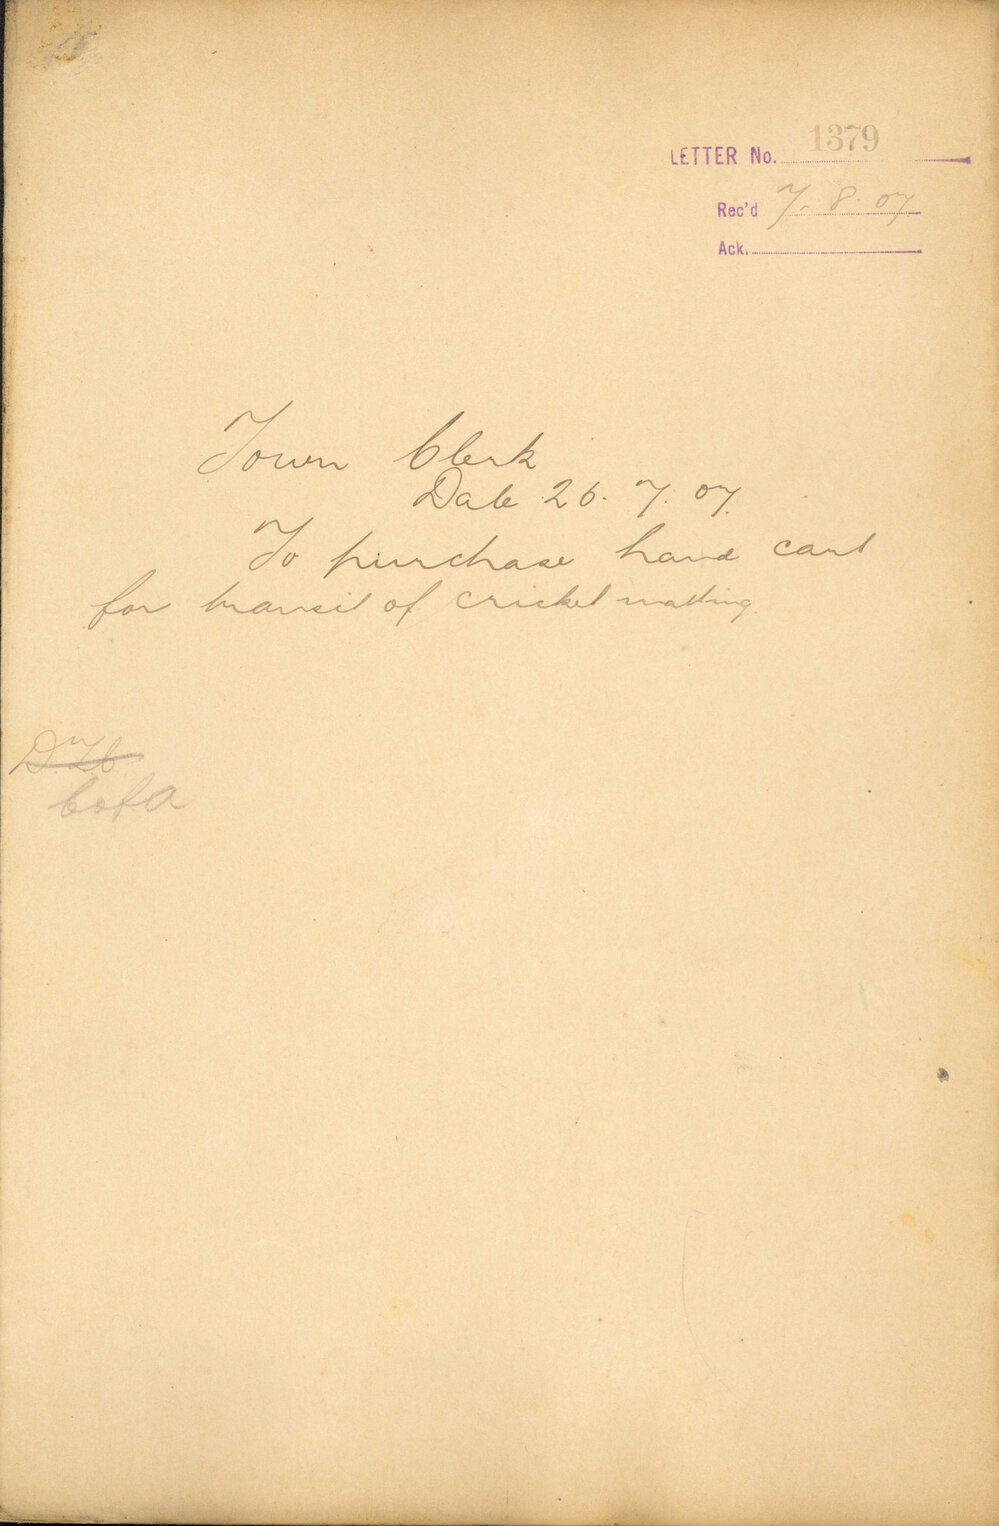 LETTER No. 1379
Rec'd 7. 8. 07
Ack.
Town Clerk
Date 26. 7. 07.
To purchase hand cart
for transit of cricket matting.
C of A